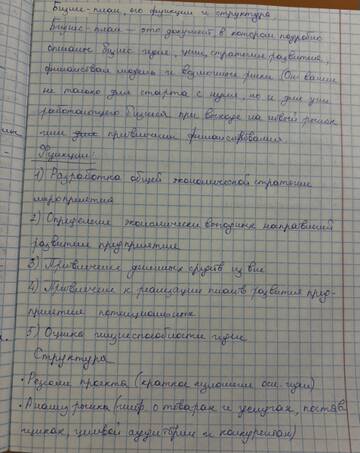 Бизнес-план, его функции и структура
Бизнес-план – это документ, в котором подробно
описаны бизнес идея, цели, стратегия развития,
финансовая модель и возможные риски. Он важен
не только для старта с нуля, но и для уже
работающего бизнеса при выходе на новый рынок
или для привлечения финансирования
Функции:
1) Разработка общей экономической стратегии
мероприятия
2) Определение экономически выгодных направлений
развития предприятия
3) Привлечение денежных средств из вне
4) Привлечение к реализации планов развития пред-
приятия потенциальных
5) Оценка жизнеспособности идеи
Структура
• Резюме проекта (краткое изложение осн. идеи)
• Анализ рынка (инф. о товарах и услугах, постав-
щиках, целевой аудитории и конкурентах)